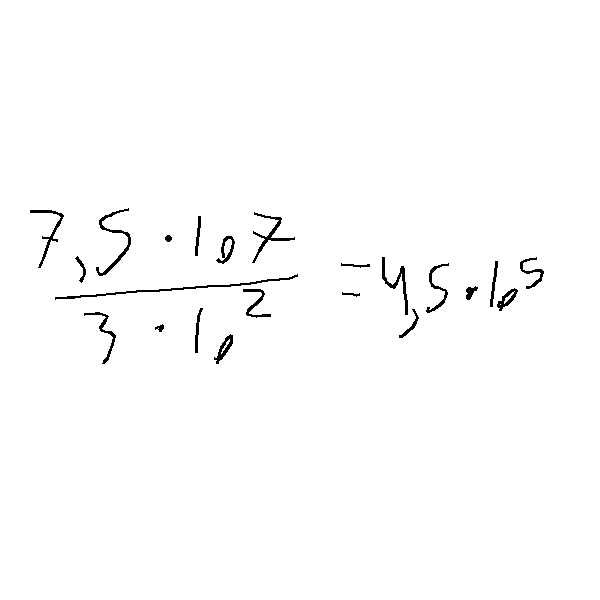 7,5 · 10^7
3 · 10^2
= 4,5 · 10^5